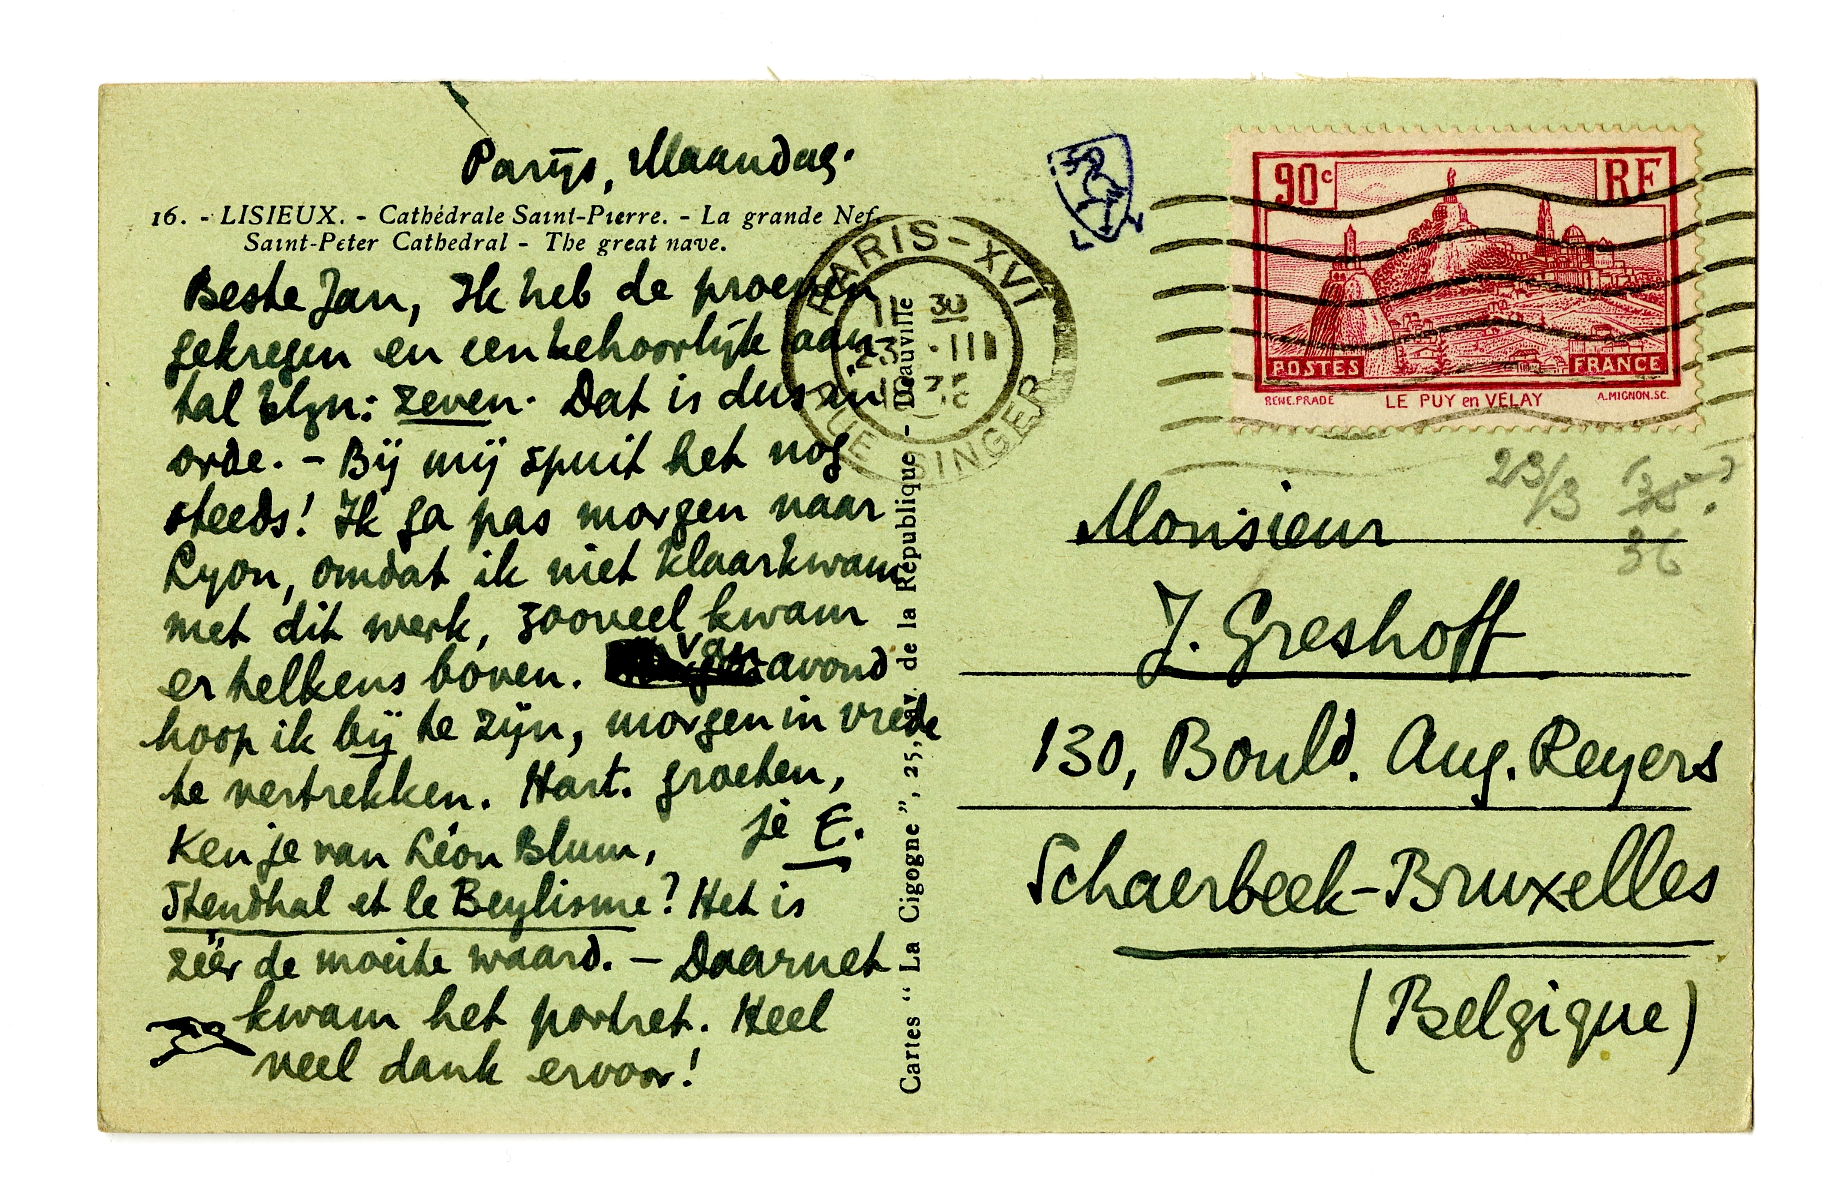 Parijs, Maandag.
16. - LISIEUX. - Cathédrale Saint-Pierre. - La grande Nef.
Saint-Peter Cathedral - The great nave.
Beste Jan, Ik heb de proeven
gekregen en een behoorlijk aan
tal Blzn: zeven. Dat is dus in
orde. - Bij mij spuit het nog
steeds! Ik ga pas morgen naar
Lyon, omdat ik niet klaarkwam
met dit werk, zooveel kwam
er telkens boven. van avond
hoop ik bij te zijn, morgen in vrede
te vertrekken. Hart. groeten,
je E.
Ken je van Léon Blum,
Stendhal et le Beylisme? Het is
zéér de moeite waard. - Daarnet
kwam het portret. Heel
veel dank ervoor!
Cartes "La Cigogne", 25, av. de la République - Deauville
PARIS-XVI
11 30
23 . III
RUE SINGER
L V
90c RF
POSTES FRANCE
RENE.PRADE LE PUY en VELAY A.MIGNON.SC.
23/3 (35?)
36
Monsieur
J. Greshoff
130, Bould. Aug. Reyers
Schaerbeek-Bruxelles
(Belgique)